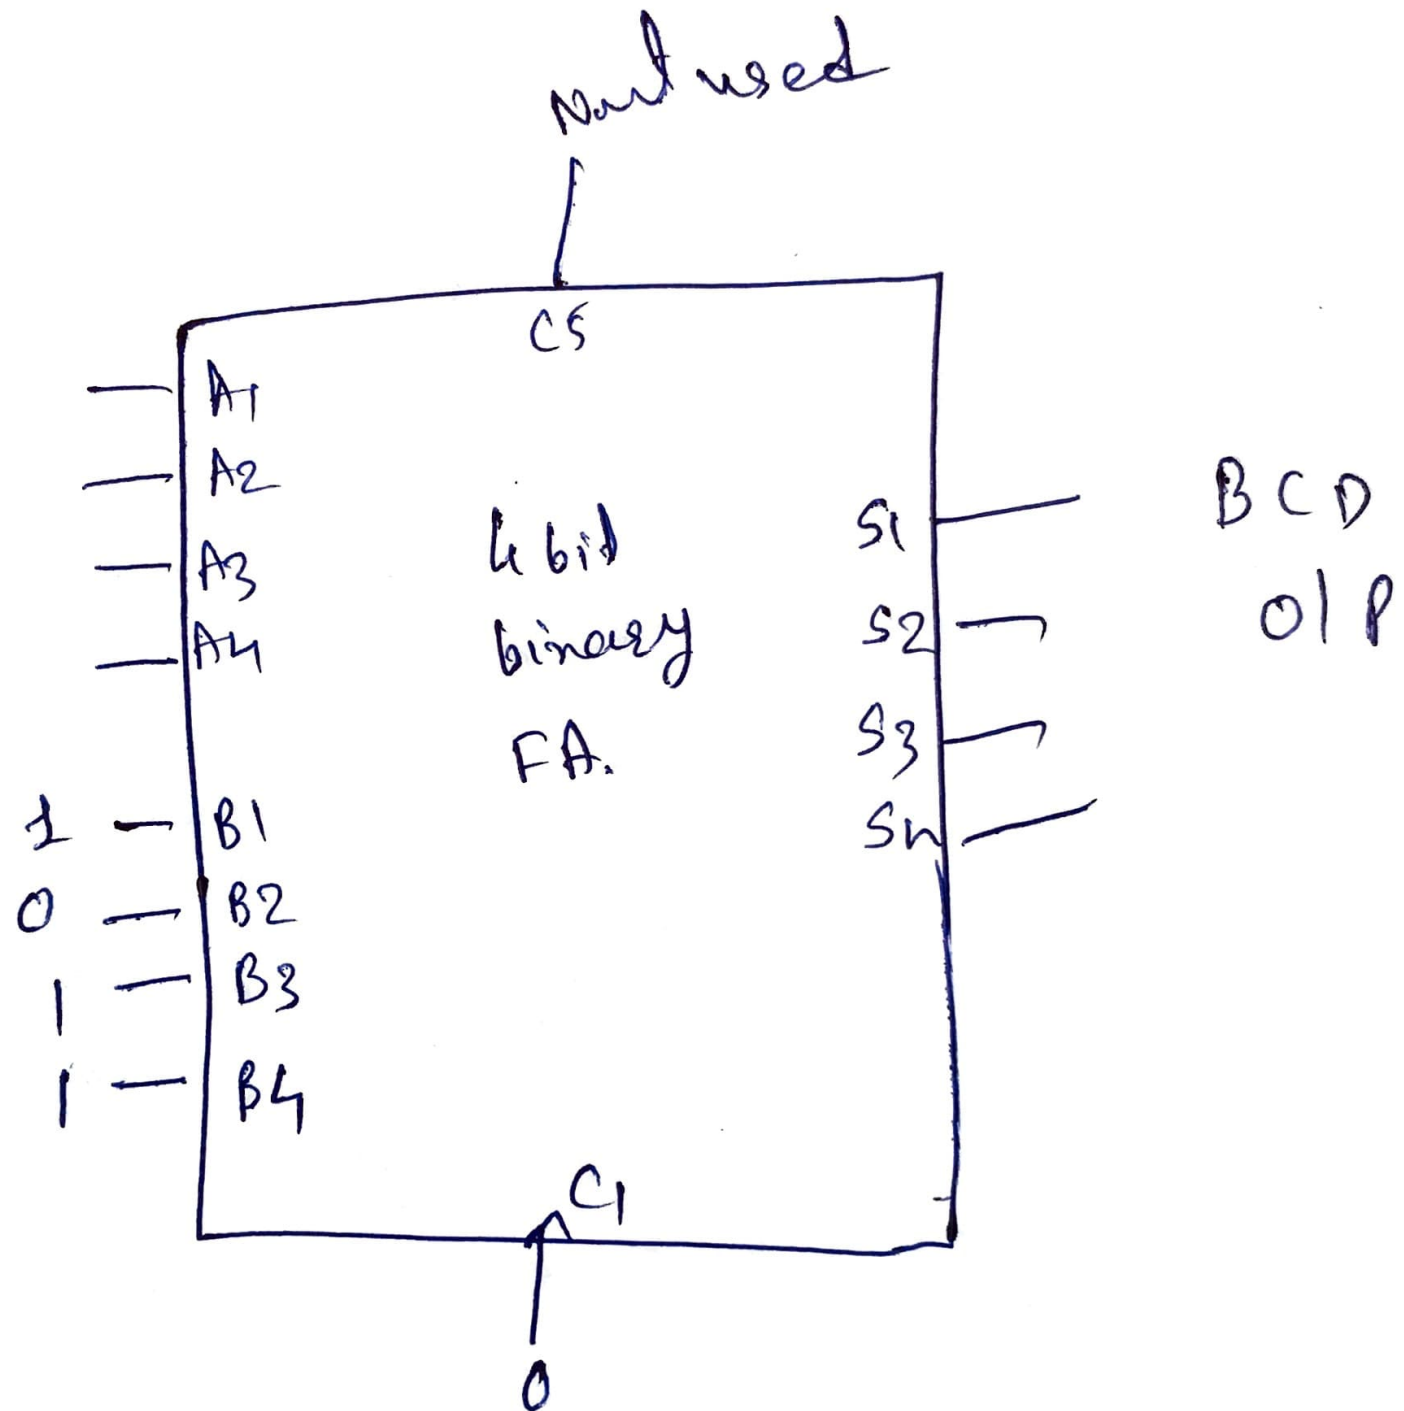 Not used
C5
A1
A2
A3
A4
4 bit
binary
FA.
S1
S2
S3
S4
BCD
O/P
1 B1
0 B2
1 B3
1 B4
C1
0